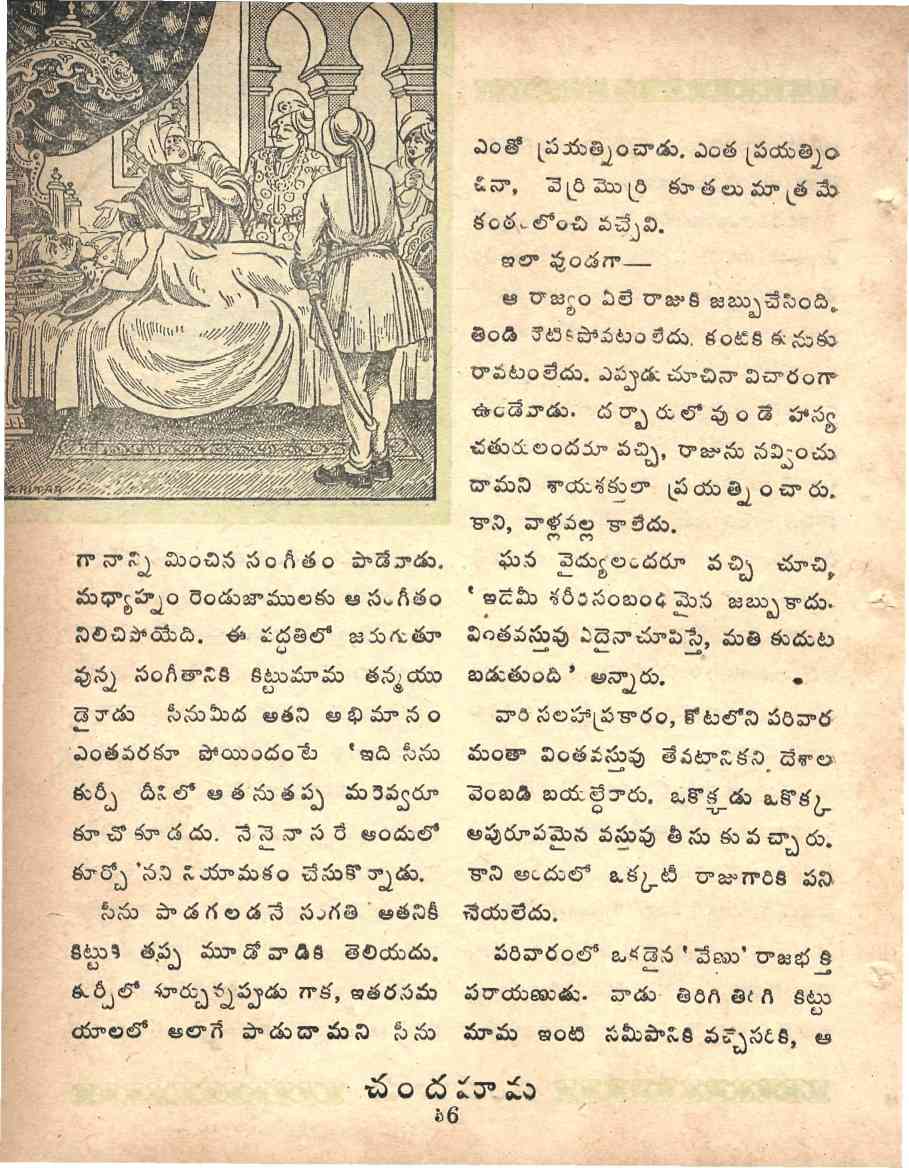 గానాన్ని మించిన సంగీతం పాడేవాడు.
మధ్యాహ్నం రెండుజాములకు ఆ సంగీతం
నిలిచిపోయేది. ఈ పద్ధతిలో జరుగుతూ
వున్న సంగీతానికి కిట్టుమామ తన్మయు
డైనాడు సీనుమీద అతని అభిమానం
ఎంతవరకూ పోయిందంటే 'ఇది సీను
కుర్చీ దీనిలో ఆతనుతప్ప మరెవ్వరూ
కూచోకూడదు. నేనైనాసరే అందులో
కూర్చో'నని నియామకం చేసుకొన్నాడు.
సీను పాడగలడనే సంగతి ఆతనికీ
కిట్టుకి తప్ప మూడోవాడికి తెలియదు.
కుర్చీలో కూర్చున్నప్పుడు గాక, ఇతరసమ
యాలలో అలాగే పాడుదామని సీను
ఎంతో ప్రయత్నించాడు. ఎంత ప్రయత్నిం
చినా, వెర్రిమొర్రి కూతలుమాత్రమే
కంఠంలోంచి వచ్చేవి.
ఇలా వుండగా—
ఆ రాజ్యం ఏలే రాజుకి జబ్బుచేసింది.
తిండి నోటికిపోవటంలేదు. కంటికి కునుకు
రావటంలేదు. ఎప్పుడుచూచినా విచారంగా
ఉండేవాడు. దర్బారులో వుండే హాస్య
చతురులందరూ వచ్చి, రాజును నవ్వించు
దామని శాయశక్తులా ప్రయత్నించారు.
కాని, వాళ్లవల్ల కాలేదు.
ఘన వైద్యులందరూ వచ్చి చూచి,
'ఇదేమీ శరీరసంబంధమైన జబ్బుకాదు.
వింతవస్తువు ఏదైనాచూపిస్తే, మతి కుదుట
బడుతుంది' అన్నారు.
వారి సలహాప్రకారం, కోటలోని పరివార
మంతా వింతవస్తువు తేవటానికని దేశాల
వెంబడి బయల్దేరారు. ఒకొక్కడు ఒకొక్క
అపురూపమైన వస్తువు తీసుకువచ్చారు.
కాని అందులో ఒక్కటీ రాజుగారికి పని
చేయలేదు.
పరివారంలో ఒకడైన 'వేణు' రాజభక్తి
పరాయణుడు. వాడు తిరిగి తిరిగి కిట్టు
మామ ఇంటి సమీపానికి వచ్చేసరికి, ఆ
చందమామ